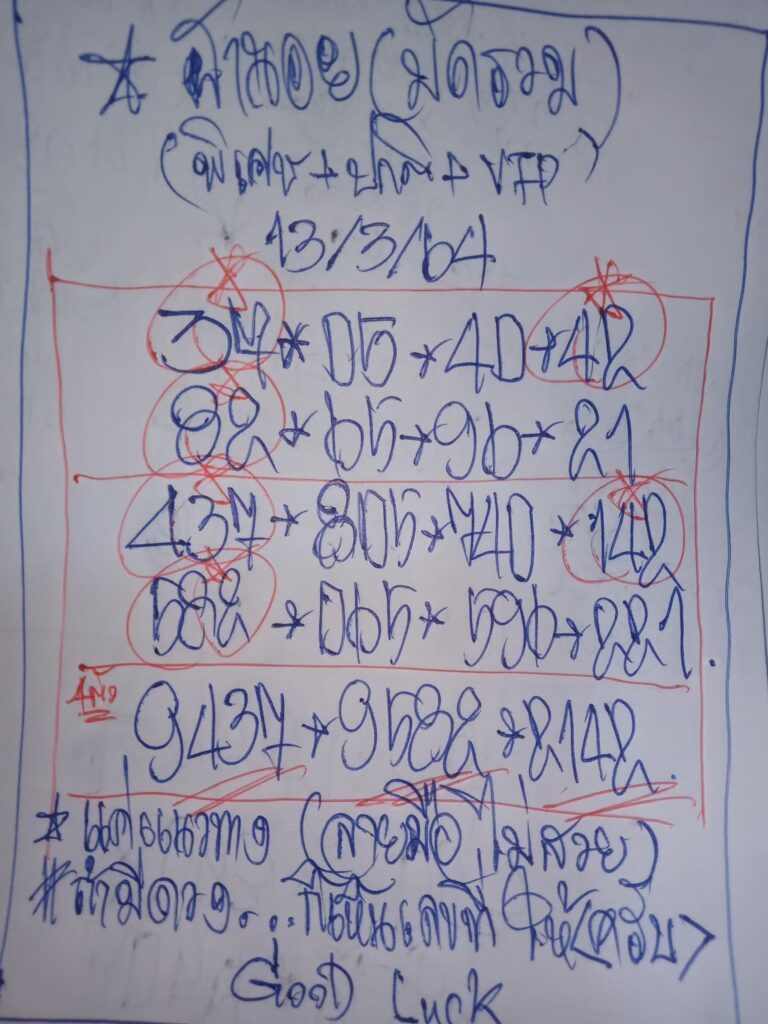 * ฮานอย (มัดรวม)
(พิเศษ + ปกติ + VIP)
13/3/64
37 * 05 * 40 * 42
82 * 65 * 96 * 21
437 * 805 * 740 * 142
582 * 065 * 596 * 221
4ตัว
9437 * 9582 * 2142
* แค่แนวทาง (ลายมือไม่สวย)
# ถ้ามีดวง... ก็เห็นเลขที่ให้(ครับ>
Good Luck